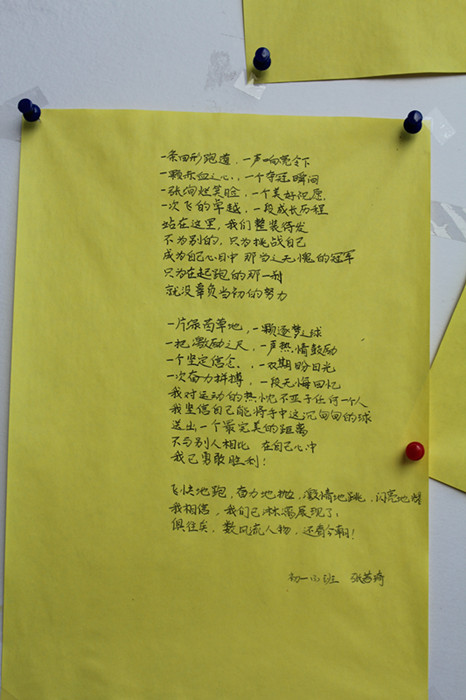 一条田形跑道，一声响亮令下
一颗赤血之心，一个夺冠瞬间
一张绚烂笑脸，一个美好祝愿
一次飞的卓越，一段成长历程
站在这里，我们整装待发
不为别的，只为挑战自己
成为自己心目中那当之无愧的冠军
只为在起跑的那一刻
就没辜负当初的努力
一片绿茵草地，一颗逐梦之球
一把激励之尺，一声热情鼓励
一个坚定信念，一双期盼目光
一次奋力拼搏，一段无悔回忆
我对运动的热忱不亚于任何一个人
我坚信自己能将手中这沉甸甸的球
送出一个最完美的距离
不与别人相比 在自己心中
我已勇敢胜利！
飞快地跑，奋力地抛，激情地跳，闪亮地
我相信，我们已淋漓展现了
俱往矣，数风流人物，还看今朝！
初一 班 张 琦